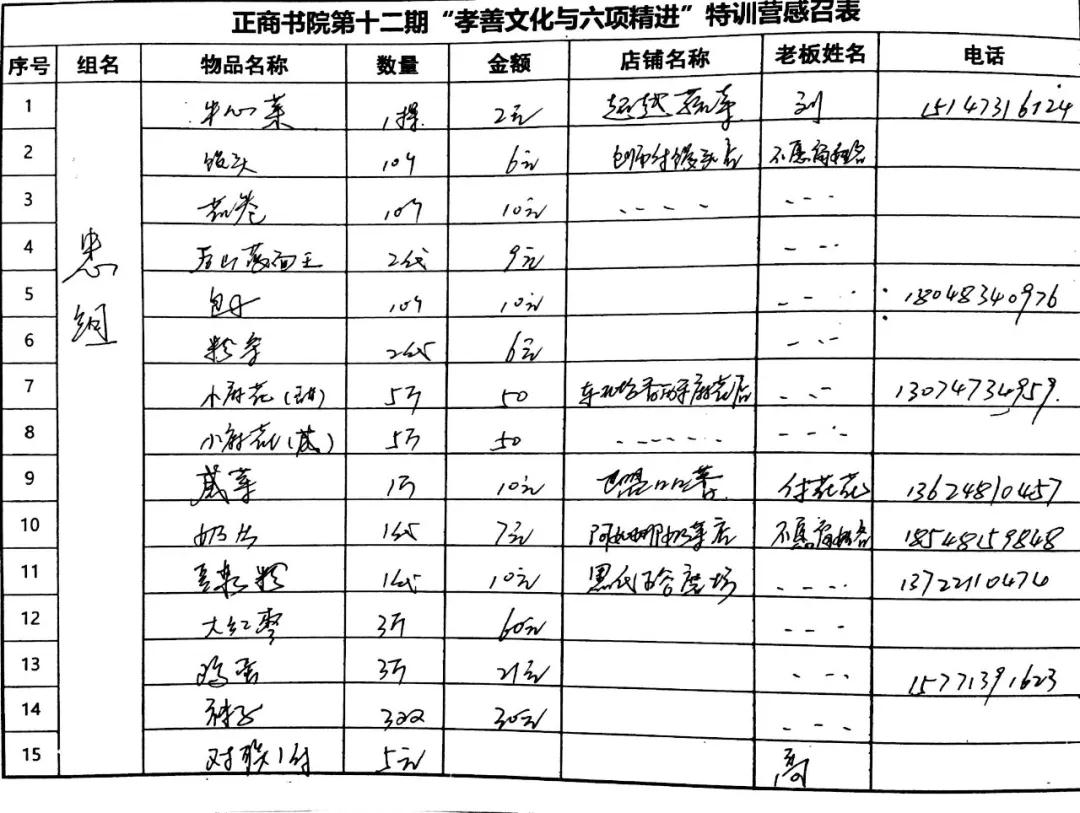 正商书院第十二期“孝善文化与六项精进”特训营感召表
序号 组名 物品名称 数量 金额 店铺名称 老板姓名 电话
忠组
1 牛心菜 1棵 2元 超越蔬菜 刘 15147316124
2 馒头 10个 6元 不愿留姓名
3 花卷 10个 10元 - - - - - - -
4 2袋 9元 - - -
5 包子 10个 10元 - - - 18048340976
6 粉条 2袋 6元 - - -
7 小麻花(甜) 5斤 50 - - - 13074734959.
8 小麻花(咸) 5斤 50 - - - - - - - - -
9 咸菜 1斤 10元 付花花 13624810457
10 奶片 1袋 7元 不愿留姓名 18548159848
11 1袋 10元 - - - 13722110474
12 大红枣 3斤 60元 - - -
13 鸡蛋 3斤 21元 - - - 15771391623
14 袜子 3双 30元 - - -
15 对联1付 5元 高